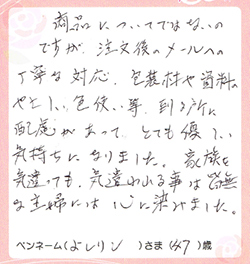 商品についてではないの
ですが、注文後のメールへの
丁寧な対応、包装材や資料の
やさしい色使い等、到る所に
配慮があって、とても優しい
気持ちになりました。家族を
気遣っても、気遣われる事は皆無
な主婦には心に染みました。
ペンネーム(よしりン )さま(47)歳